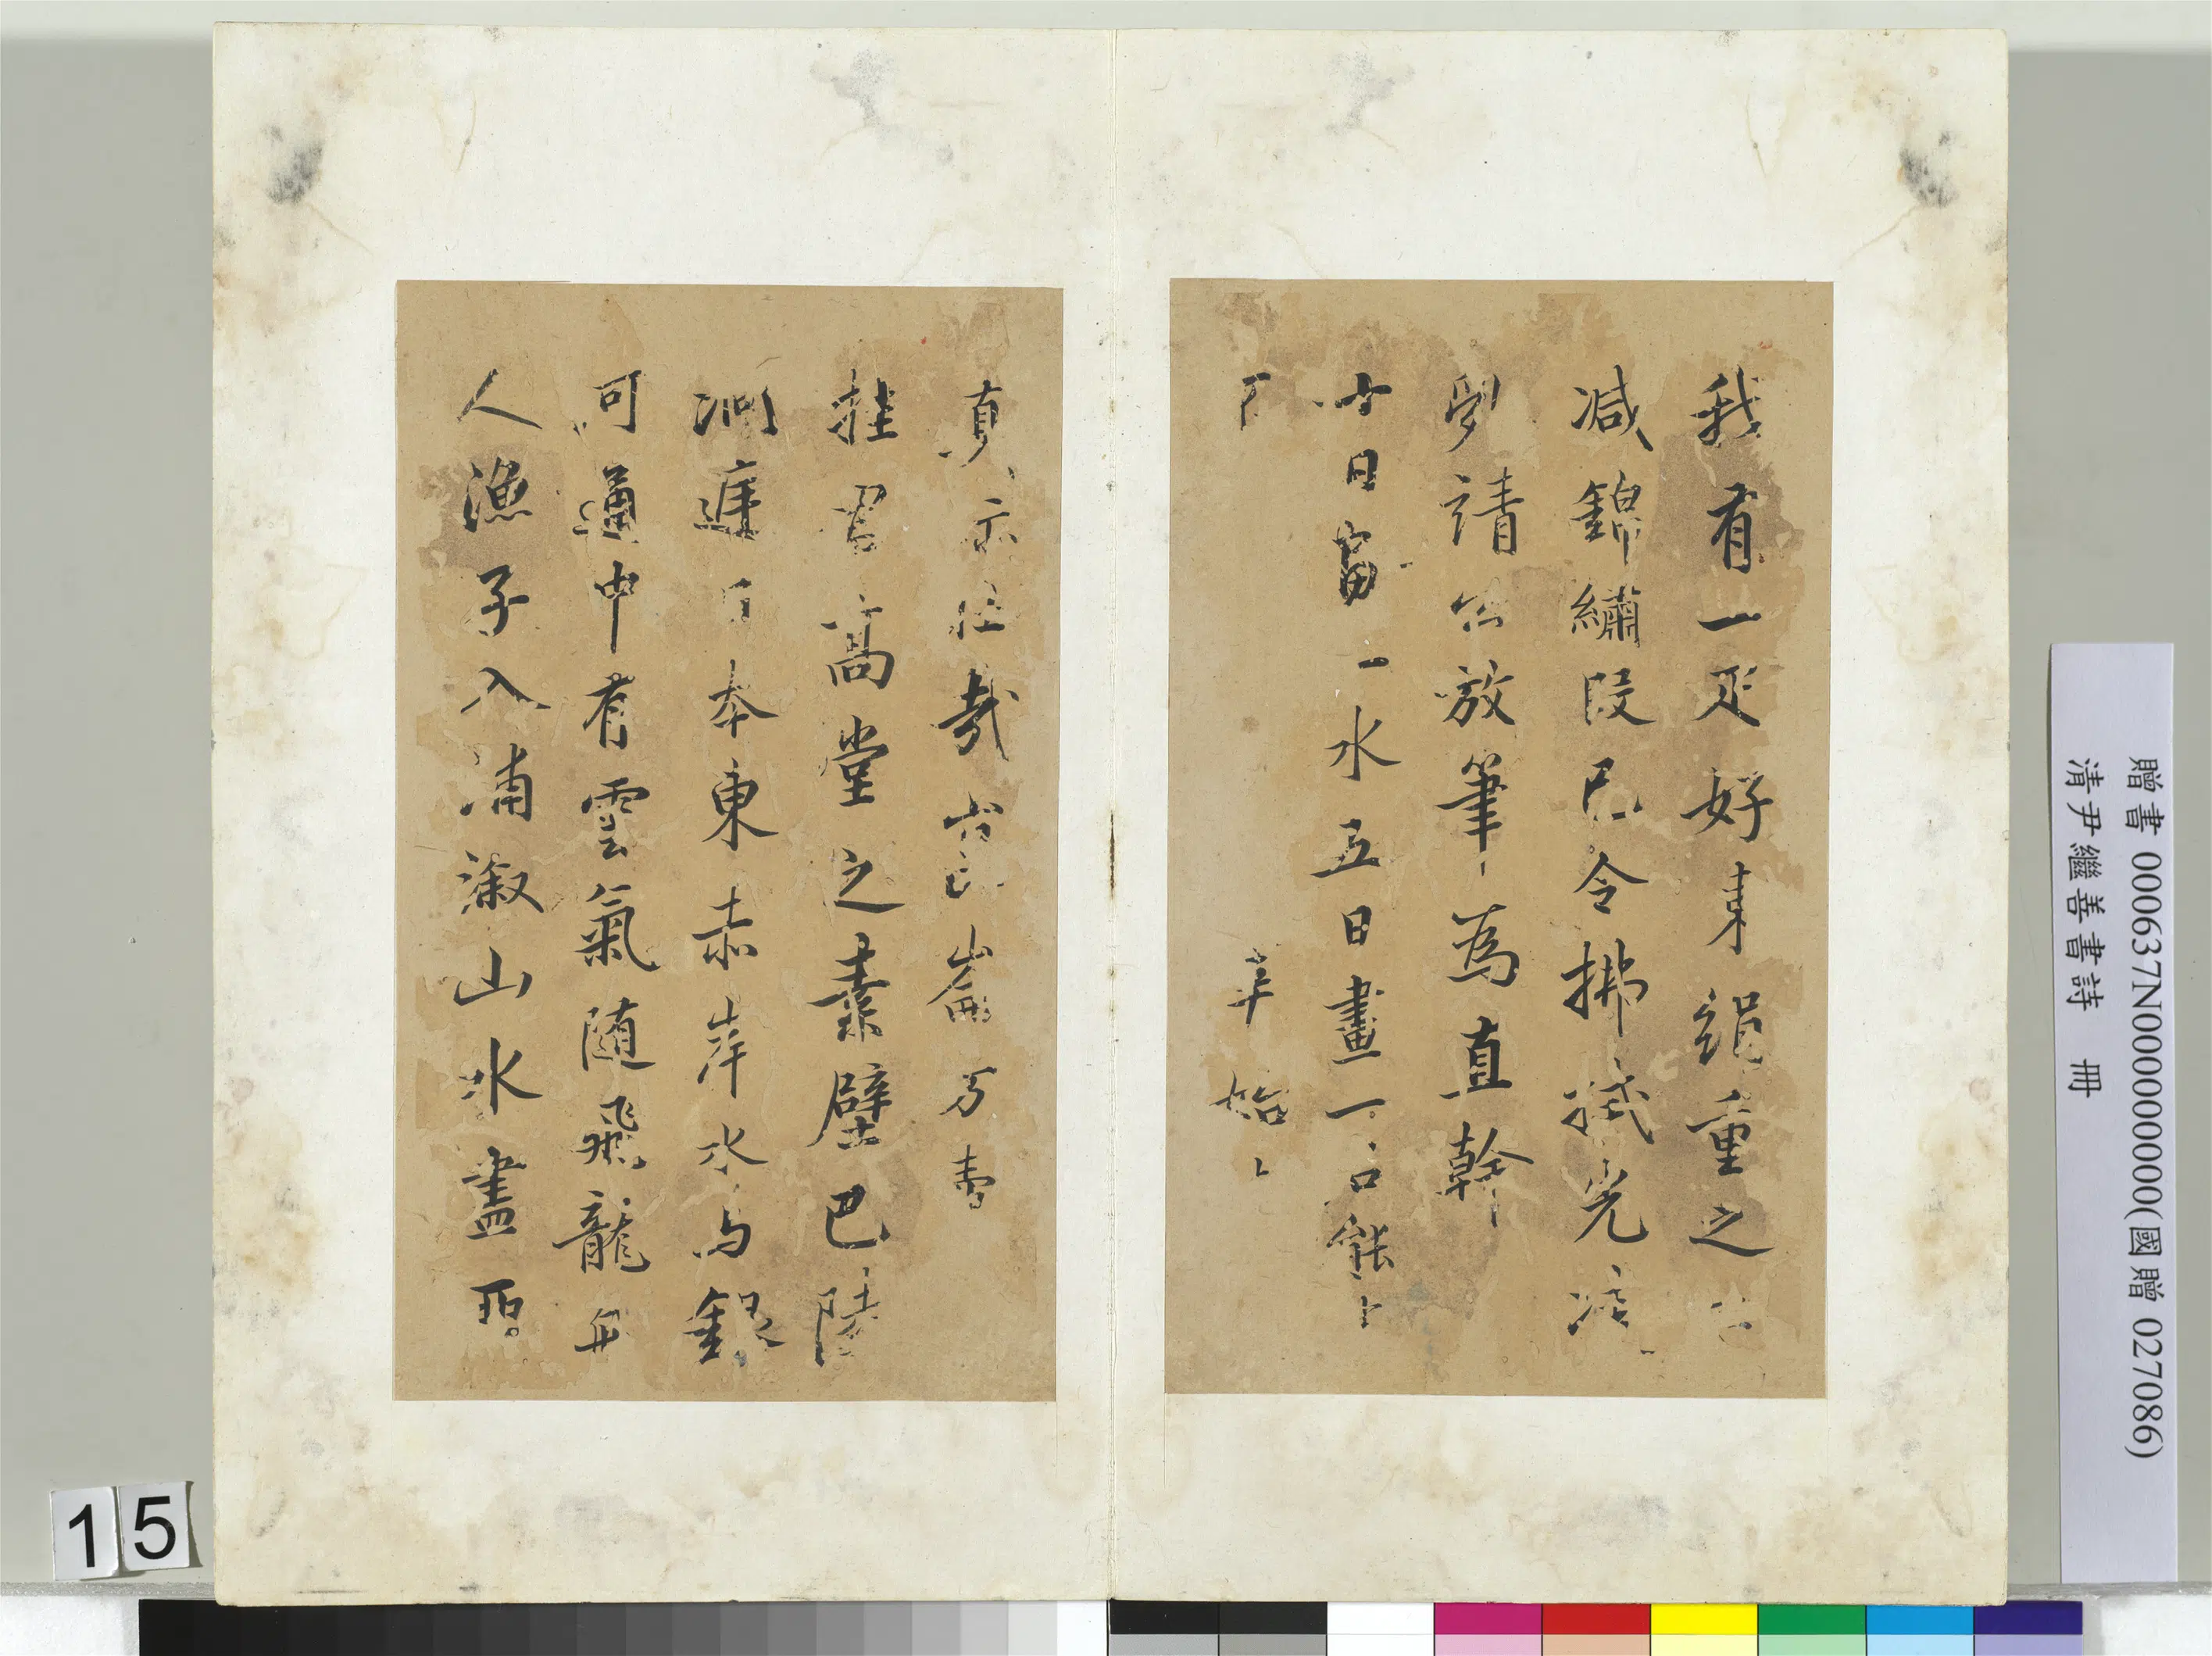 我有一疋好東絹重之
減錦繡段已令拂拭光凌
亂請公放筆為直幹
十日畫一水五日畫一石能
真
壯哉崑崙方壺
挂君高堂之素壁巴陵
洞庭日本東赤岸水與銀
河通中有雲氣隨飛龍舟
人漁子入浦漵山水盡亞
贈書 000637N000000000(國贈 027086)
清尹繼善書詩 冊
15